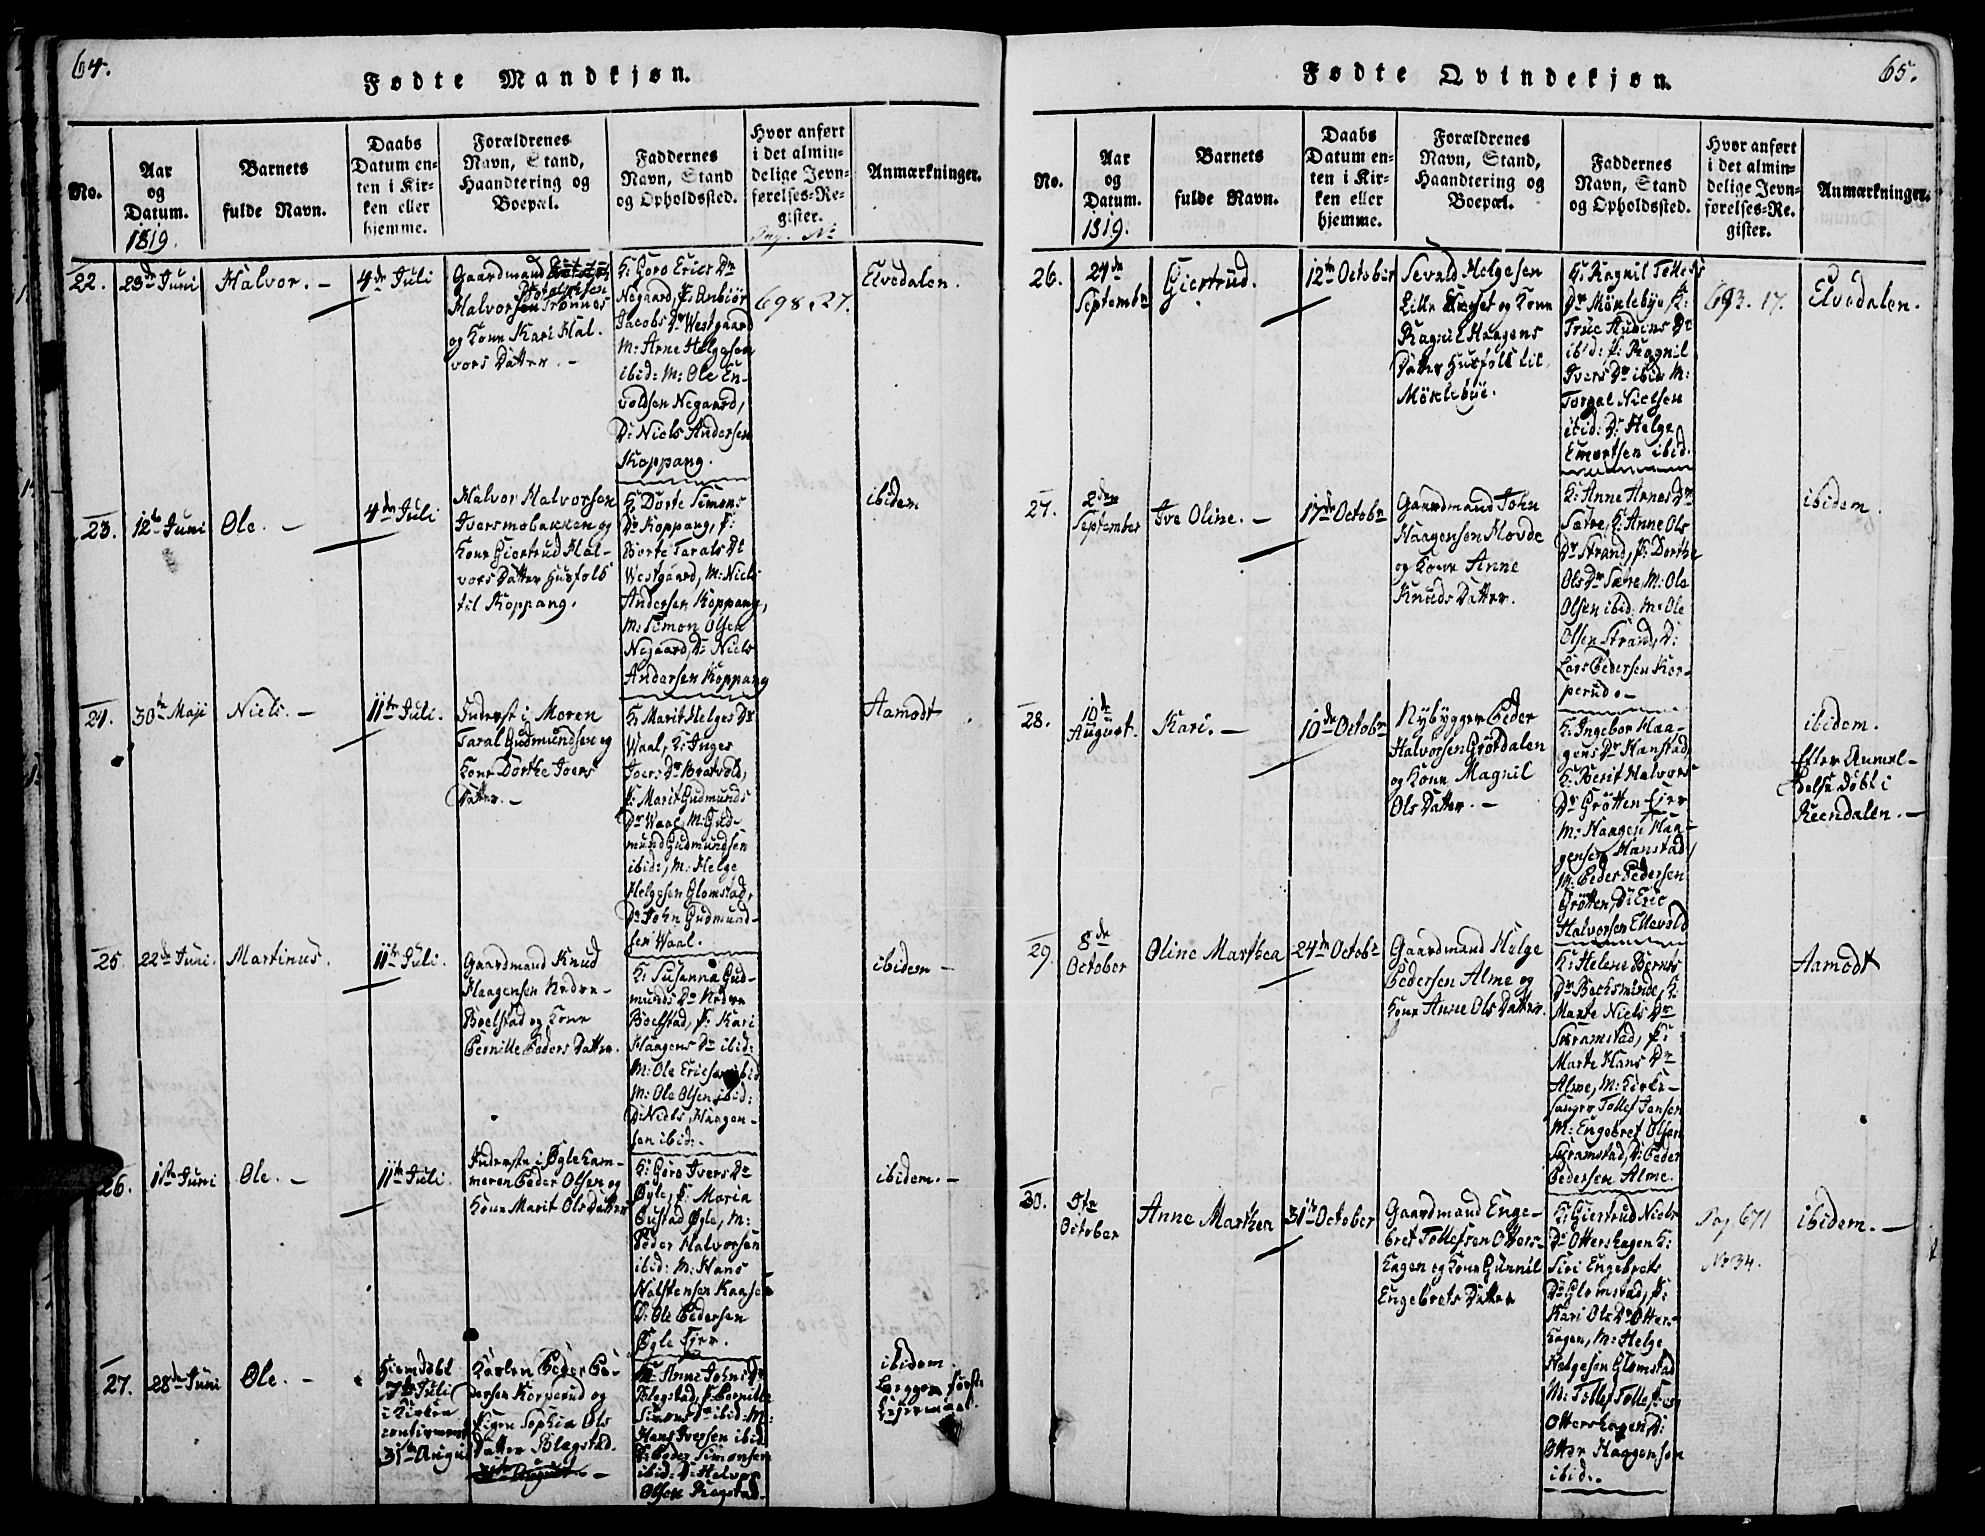 64.
Fødte Mandkjøn.
No.
Aar
og
Datum.
1819.
Barnets
fulde Navn.
Daabs
Datum en-
ten i Kir-
ken eller
hjemme.
Forældrenes
Navn, Stand,
Haandtering og
Boepæl.
Faddernes
Navn, Stand
og Opholdssted.
Hvor anført
i det almin-
delige Jevn-
førelses-Re-
gister.
Pag. No
Anmærkninger.
22.
23de Juni
Halvor. -
4de Juli
Gaardmand
Halvorsen Trønnes
og Kone Kari Hal-
vors Datter. -
K: Goro Erics Dr
Negaard, P: Anbiør
Jacobs Dr Westgaard
M: Arne Helgesen
ibid: M: Ole En-
voldsen Negaard,
D: Niels Andersen
Koppang.
698. 27.
Elvedalen.
23.
12te Juni
Ole. -
4de Juli
Halvor Halvorsen
Iversmobakken og
Kone Giertrud Hal-
vors Datter Husfolk
til Koppang.
K: Dorte Simons
Dr Koppang, P:
Dorte Tarals Dr
Westgaard, M: Niels
Andersen Koppang,
M: Simon Olsen
Negaard, D: Niels
Andersen Koppang
ibidem
24.
30te Maji
Niels. -
11te Juli.
Inderst i Moren
Taral Gudmundsen og
Kone Dorthe Joers
Datter. -
K: Marit Helges Dr
Waal, K: Inger
Joers Dr Bratvold,
P: Marit Gudmunds
Dr Waal, M: Gud-
mund Gudmundsen
ibid:, M: Helge
Helgesen Glomstad,
D: John Gudmund-
sen Waal.
Aamodt
25.
22de Juni.
Martinus.
11te Juli.
Gaardmand Knud
Haagensen Nedre-
Bolstad og Kone
Pernille Peders Datter.
K: Susanna Gud-
munds Dr Nedre
Bolstad, P: Kari
Haagens Dr ibid:
M: Ole Ericsen ibid
M: Ole Olsen ibid:
D: Niels Haagen-
sen ibid:-
ibidem -
26.
1ste Juni
Ole. -
11te Juli.
Inderste i Øgle Kam-
meren Peder Olsen og
Kone Marit Ols Datter
K: Goro Ivers Dr
Øgle, P: Maria
Øustad Øgle, M:
Peder Halvorsen
ibid: M: Hans
Halstensen Kaasen
D: Ole Pedersen
Øgle Eier.
ibidem. -
27.
28de Juni
Ole. -
Hiemdøbt
7de Juli
i Kirken
confirmeret
31te August
Karlen Peder Pe-
dersen Korperud og
Pigen Sophia Ols
Datter Blegstad.
K: Anne Johns Dr
Blegstad, P: Pernille
Simons Dr ibid: M:
Hans Iversen ibid
M: Peder Simonsen
ibid: D: Halvor
Olsen Ragstad.
ibidem.
Begges første
Leiermaal.
65.
Fødte Qvindekjøn.
No.
Aar
og
Datum.
1819.
Barnets
fulde Navn.
Daabs
Datum en-
ten i Kir-
ken eller
hjemme.
Forældrenes
Navn, Stand,
Haandtering og
Boepæl.
Faddernes
Navn, Stand
og Opholdssted.
Hvor anført
i det almin-
delige Jevn-
førelses-Re-
gister.
Anmærkninger.
26.
24de
Septembr
Giertrud.
12te October
Sevald Helgesen
Lille og Kone
Ragnil Haagens
Datter Husfolk til
Møklebye.
K: Ragnil Tollefs
Dr Møklebye, K:
True Audens Dr
ibid: P: Ragnil
Ivers Dr ibid. M:
Torgal Nielsen
ibid: D: Helge
Emortsen ibid.
693. 17.
Elvedalen.
27.
2den
September
Ive Oline. -
17de Octobr
Gaardmand John
Haagensen Hovde
og Kone Anne
Knuds Datter.
K: Anne Arnes Dr
Sætre, K: Anne Ols
Dr Strand, P: Dorthe
Ols Dr Sætre, M: Ole
Olsen ibid: M: Ole
Olsen Strand, D:
Lars Pedersen Kor-
perud. -
ibidem.
28.
10de
August.
Kari. -
10de Octobr
Nybygger Peder
Halvorsen Grötdalen
og Kone Magnil
Ols Datter. -
K: Ingebor Haa-
gens Dr Hanstad,
K: Berit Halvors
Dr Grötten Eier
M: Haagen Haa-
gensen Hanstad,
M: Peder Pedersen
Grötten, D: Eric
Halvorsen Ellevold
ibidem.
Efter Anmel-
delse døbt i
Reendalen. -
29.
8de
October
Oline Marthea
24de Octobr
Gaardmand Helge
Pedersen Alme og
Kone Anne Ols Datter.
K: Helene Bernts
Dr Bechsminde, K:
Marte Niels Dr
Skramstad, P:
Marte Hans Dr
Alme, M: Kirke-
sanger Tollef Jensen
M: Engebret Olsen
Skramstad, D: Peder
Pedersen Alme.
Aamodt
30.
October
Anne Marthea
31te October
Gaardmand Enge-
bret Tollefsen Otters-
hagen og Kone Gunnil
Engebrets Datter
K: Giertrud Niels
Dr Ottershagen K:
Siri Engebrets
Dr Glomstad, P:
Kari Ols Dr Otters-
hagen, M: Helge
Helgesen Glomstad
M: Tollef Tollefsen
Ottershagen, D:
Otter Haagensen
ibid. -
Pag. 671
No 34.
ibidem. -